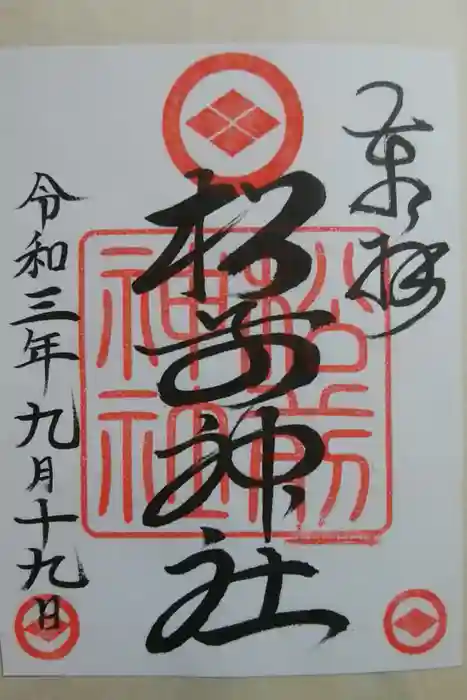 奉拝
松前神社
松前
神社
令和三年九月十九日